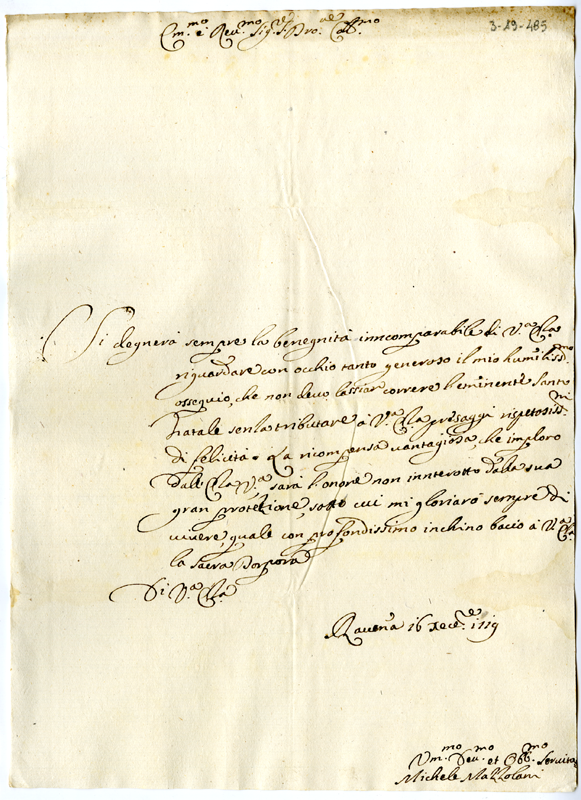 Em.mo e Rev.mo Sig.r Pro.ne Col.mo
3-19-485
Si degnerà sempre la benegnità inncomparabile di V.a Em.a
riguardare con occhio tanto generoso il mio humiliss.mo
ossequio, che non devo lassiar correre l'eminente Santo
Natale senza tributare à V.a Em.a presaggi rispetosiss.mi
di felicità. La ricompensa vantagiosa, che imploro
dall' Em.a V.a sarà l'honore non innterotto dalla sua
gran protetione, sotto cui mi gloriarò sempre di
vivere, quale con profondissimo inchino bacio à V.a Em.a
la sacra Porpora
Di V.a Em.a
Ravena 16 Xece.e 1719
Um.mo Dev.mo et Obb.mo Servito
Michele Mazzolani